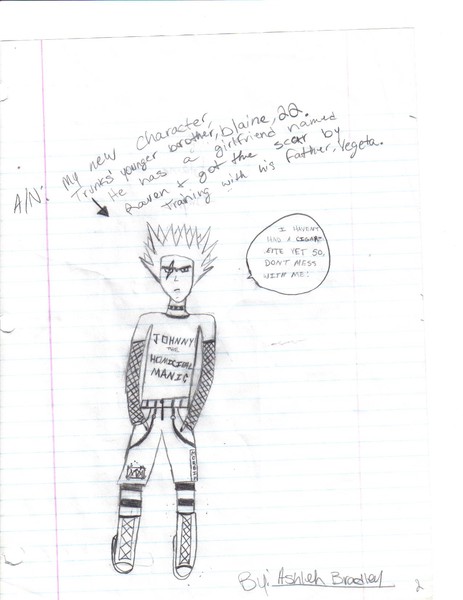 A/N: My new character,
Trunks' younger brother, Blaine, 22.
He has a girlfriend named
Raven & got the scar by
training with his father, Vegeta.
I HAVEN'T
HAD A CIGAR-
ETTE YET SO,
DON'T MESS
WITH ME!
JOHNNY
THE
HOMICIDAL
MANIC
By: Ashleh Bradley
2